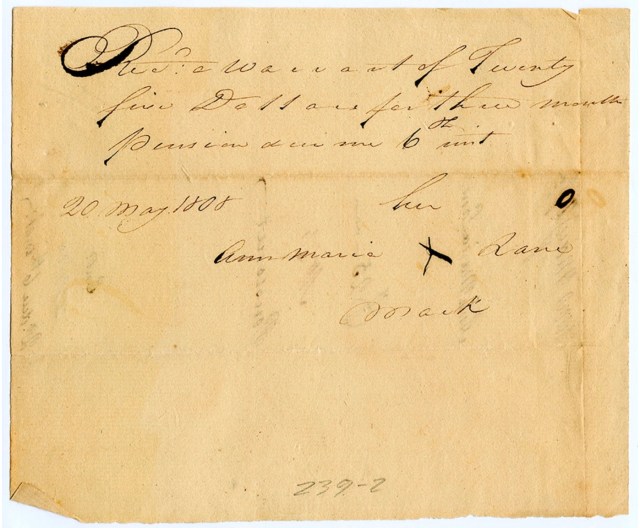 Recd. a Warrant of Twenty
five Dollars for three months
Pension due me 6th inst
20 May 1808 her
Ann Maria X Lane
Mark
239-2